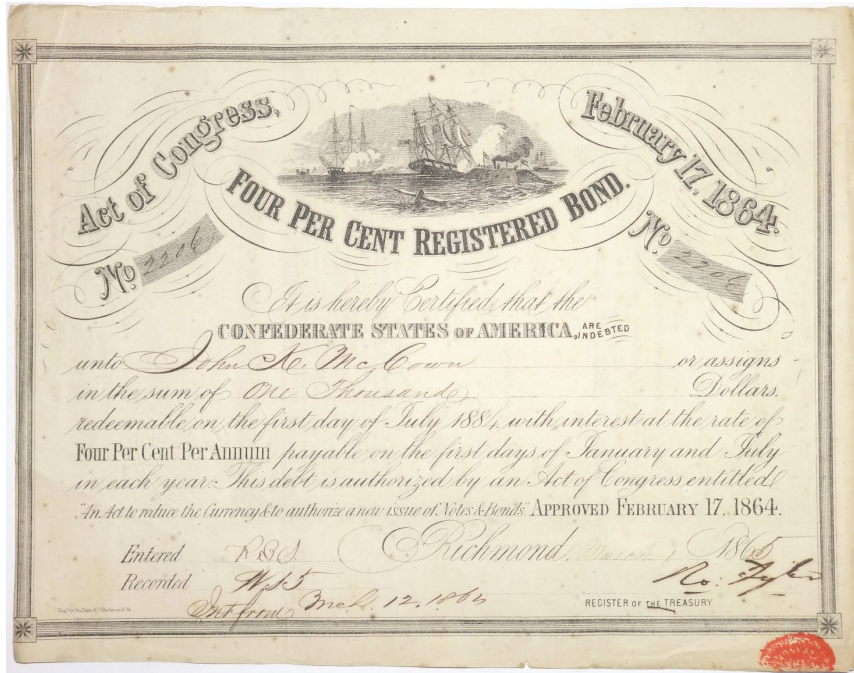 Act of Congress,
February 17, 1864.
FOUR PER CENT REGISTERED BOND.
No 2206
No 2206
It is hereby Certified, that the
CONFEDERATE STATES OF AMERICA, ARE INDEBTED
unto John K. McCown or assigns
in the sum of One Thousand Dollars.
redeemable on the first day of July 1884, with interest at the rate of
Four Per Cent Per Annum payable on the first days of January and July
in each year. This debt is authorized by an Act of Congress entitled
"An Act to reduce the Currency & to authorize a new issue of Notes & Bonds" APPROVED FEBRUARY 17, 1864.
Entered
Richmond, March 1 1865
Recorded
Ro: Tyler
Int from Mch 12. 1864
REGISTER OF THE TREASURY